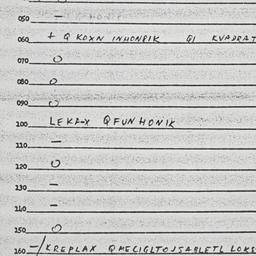 050 –
060 + Q KOXN INHONRIK GI KVADRAT
070 O
080 O
090 O
100 LEKRX QFUNHONIK
110 –
120 O
130 –
140 –
150 O
160 –/KREPLAX QMECIGLTOJSABLETL LOKS